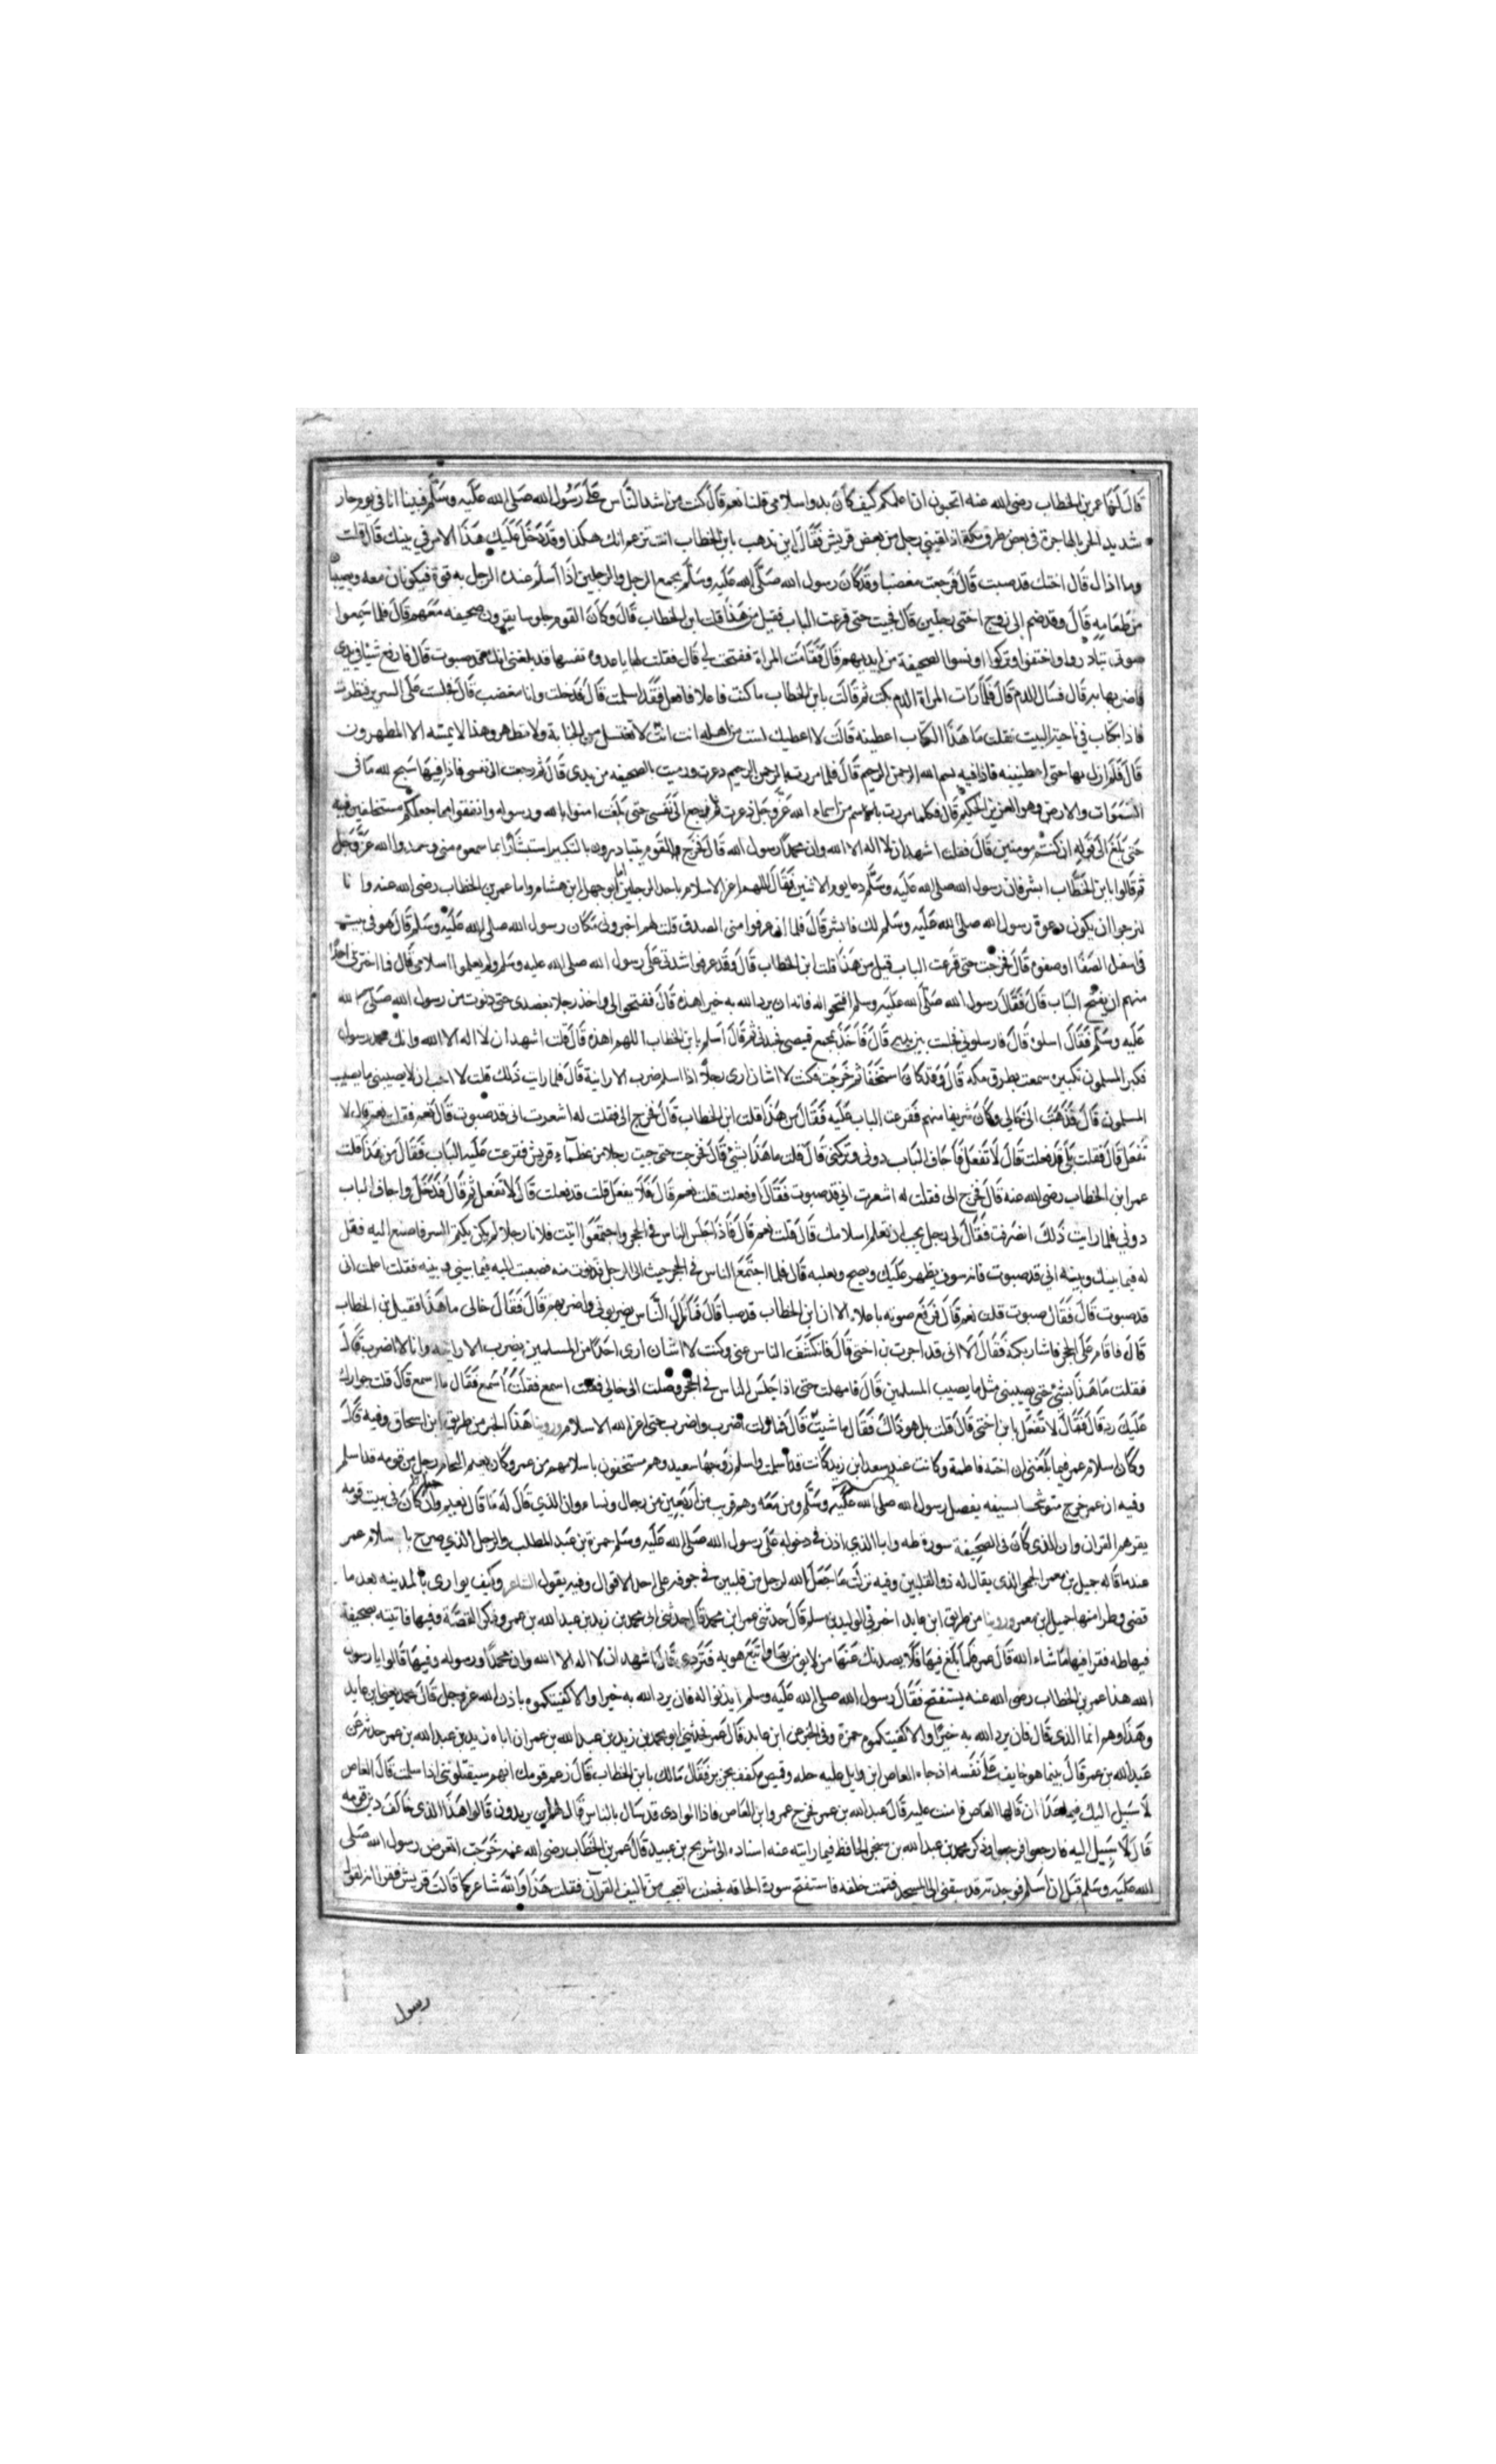 قال لنا عمر بن الخطاب رضى الله عنه اتحبون ان اعلمكم كيف كان بدو اسلامى قلنا نعم قال كنت من اشد الناس على رسول الله صلى الله عليه وسلم فبينا انا فى يوم حار
شديد الحر بالهاجرة فى بعض طرق مكة اذ لقينى رجل من بعض قريش فقال اين تذهب يا بن الخطاب انت تزعم انك هكذا وقد دخل عليك هذا الامر فى بيتك قال قلت
وما ذاك قال اختك قد صبت قال فرجعت مغضبا وقد كان رسول الله صلى الله عليه وسلم يجمع الرجل والرجلين اذا اسلم عند الرجل به قوة فيكونان معه ويصيبا
من طعامه قال وقد ضم الى زوج اختى رجلين قال فجيت حتى قرعت الباب فقيل من هذا قلت ابن الخطاب قال وكان القوم جلوسا يقرون صحيفه معهم قال فلما سمعوا
صوتى تبادروا واختفوا وتركوا او نسوا الصحيفة من ايديهم قال فقامت المراة ففتحت لى قال فقلت لها يا عدوه نفسها قد بلغنى انك صبوت قال فارفع شيا فى يدى
فاضربها به قال فسال الدم قال فلما رات المراة الدم بكت ثم قالت يا بن الخطاب ما كنت فاعلا فافعل فقد اسلمت قال فدخلت وانا مغضب قال فجلست على السرير فنظرت
فاذا بكتاب فى ناحية البيت فقلت ما هذا الكتاب اعطينه قالت لا اعطيك لست من اهله انت لا تغتسل من الجنابة ولا تطهر وهذا لا يمسه الا المطهرون
قال فلم ازل بها حتى اعطتنيه فاذا فيه بسم الله الرحمن الرحيم قال فلما مررت بالرحمن الرحيم ذعرت ورميت بالصحيفه من يدى قال ثم رجعت الى نفسى فاذا فيها سبح لله ما فى
السموات والارض وهو العزيز الحكيم قال فكلما مررت باسم من اسماء الله عز وجل ذعرت ثم ترجع الى نفسى حتى بلغت امنوا بالله ورسوله وانفقوا مما جعلكم مستخلفين فيه
حتى بلغ الى قوله ان كنتم مومنين قال فقلت اشهد ان لا اله الا الله وان محمدا رسول الله قال فخرج القوم يتبادرون بالتكبير استبشارا بما سمعوه منى وحمدوا الله عز وجل
ثم قالوا يا بن الخطاب ابشر فان رسول الله صلى الله عليه وسلم دعا يوم الاثنين فقال اللهم اعز الاسلام باحد الرجلين اما ابو جهل ابن هشام واما عمر بن الخطاب رضى الله عنه وانا
لنرجو ان يكون دعوة رسول الله صلى الله عليه وسلم لك فابشر قال فلما ان عرفوا منى الصدق قلت لهم اخبرونى بمكان رسول الله صلى الله عليه وسلم قال هو فى بيت
فى اسفل الصفا وصفوه قال فخرجت حتى قرعت الباب قيل من هذا قلت ابن الخطاب قال وقد عرفوا شدتى على رسول الله صلى الله عليه وسلم ولم يعلموا اسلامى قال فما اجترى احد
منهم ان يفتح الباب قال فقال رسول الله صلى الله عليه وسلم افتحوا له فانه ان يرد الله به خيرا يهده قال ففتحوا لى واخذ رجلان بعضدى حتى دنوت من رسول الله صلى الله
عليه وسلم فقال ارسلوه قال فارسلونى فجلست بين يديه قال فاخذ بمجمع قميصى فجبذنى ثم قال اسلم يا بن الخطاب اللهم اهده قال قلت اشهد ان لا اله الا الله وانك محمد رسول
فكبر المسلمون تكبيره سمعت بطرق مكه قال وقد كان استخفا ثم خرجت فكنت لا اشا ان ارى رجلا اذا اسلم ضرب الا رايته قال فلما رايت ذلك قلت لا احب ان لا يصيبنى ما يصيب
المسلمون قال فذهبت الى خالى وكان شريفا منهم فقرعت الباب عليه فقال من هذا قلت ابن الخطاب قال فخرج الى فقلت له اشعرت انى قد صبوت قال نعم فقلت نعم قال لا
تفعل قال فقلت بلى قد فعلت قال لا تفعل فاجاف الباب دونى وتركنى قال قلت ما هذا بشى قال فخرجت حتى جيت رجلا من عظماء قريش فقرعت عليه الباب فقال من هذا قلت
عمر ابن الخطاب رضى الله عنه قال فخرج الى فقلت له اشعرت انى قد صبوت فقال او فعلت قلت نعم قال فلا تفعل قلت قد فعلت قال لا تفعل ثم قال فدخل واجاف الباب
دونى فلما رايت ذلك انصرفت فقال لى رجل تحب ان تعلم اسلامك قال قلت نعم قال فاذا جلس الناس فى الحجر واجتمعوا اتيت فلانا رجلا لم يكن يكتم السر فاصنع اليه فقل
له فيما بينك وبينه انى قد صبوت فانه سوف يظهر عليك ويصيح ويعلنه قال فلما اجتمع الناس فى الحجر جيت الى الرجل فدنوت منه فصغيت اليه فيما بينى وبينه فقلت اعلمت انى
قد صبوت قال فقال صبوت قلت نعم قال فرفع صوته باعلاه الا ان ابن الخطاب قد صبا قال فمازال الناس يضربونى واضربهم قال فقال خالى ما هذا فقيل ابن الخطاب
قال فاقام على الحجر فاشار بكمه فقال الا انى قد اجرت بن اختى قال فانكشف الناس عنى وكنت لا اشا ان ارى احدا من المسلمين يضرب الا رايته وانا لا اضرب قال
فقلت ما هذا بشى حتى يصيبنى مثل ما يصيب المسلمين قال فامهلت حتى اذا جلس الناس فى الحجر وصلت الى خالى فقلت اسمع فقلت اسمع فقال ما اسمع قال قلت جوارك
عليك رد قال فقال لا تفعل يا بن اختى قال قلت بل هو ذاك فقال ما شيت قال فمازلت اضرب واضرب حتى اعز الله الاسلام وروينا هذا الخبر من طريق ابن اسحاق وفيه قال
وكان اسلام عمر فيما بلغنى ان اخته فاطمة وكانت عند سعد ابن زيد كانت قد اسلمت واسلم زوجها سعيد وهم مستخفون باسلامهم من عمر وكان نعيم النحام رجل من قومه قد اسلم
وفيه ان عمر خرج متوشحا بسيفه يقصد رسول الله صلى الله عليه وسلم ومن معه وهم قريب من اربعين من رجال ونساء وان الذى قال له ما قال نعيم وان كان فى بيت قومه
يقرهم القران وان الذى كان فى الصحيفة سورة طه وان الذى اذن فى دخوله على رسول الله صلى الله عليه وسلم حمزة بن عبد المطلب والرجل الذى صرح باسلام عمر
عند ما قاله جميل بن معمر الجمحى الذى يقال له ذو القلبين وفيه نزلت ما جعل الله لرجل من قلبين فى جوفه على احد الاقوال وفيه يقول الشاعر وكيف ثوائى بالمدينه بعد ما
قضى وطرا منها جميل بن معمر وروينا من طريق ابن عايد اخبرنى الوليد بن مسلم قال حدثنى عمر ابن محمد قال حدثنى ابى محمد بن زيد بن عبد الله بن عمر وذكر القصة وفيها فاتيته بصحيفة
فيها طه فقرا فيها ما شاء الله قال عمر فلما بلغ فيها فلا يصدنك عنها من لا يومن بها واتبع هويه فتردى قال اشهد ان لا اله الا الله وان محمدا ورسوله وفيها قالوا يا رسول
الله هذا عمر بن الخطاب رضى الله عنه يستفتح فقال رسول الله صلى الله عليه وسلم ايذنوا له فان يرد الله به خيرا والا كفيتكموه باذن الله عز وجل قال محمد يعنى ابن عايد
وهذا وهم انما الذى قال فان يرد الله به خيرا والا كفيتكموه حمزة وفى الخبر عن ابن عايد قال عمر فحدثنى ابى محمد بن زيد بن عبد الله بن عمر ان اباه زيد بن عبد الله بن عمر حدثه عن
عبد الله بن عمر قال بينما هو خايف على نفسه اذ جاه العاص ابن وايل عليه حله وقميص مكفف بحرير فقال مالك يا بن الخطاب قال زعم قومك انهم سيقتلونى اذا اسلمت قال العاص
لا سبيل اليك فيما بعد ان قالها العاص فامنت عليه قال عبد الله بن عمر فخرج عمر وابن العاص فاذا الوادى قد سال بالناس قال لهم اين يريدون قالوا هذا الذى خالف دين قومه
قال لا سبيل اليه فارجعوا فرجعوا وذكر محمد بن عبد الله بن سنجر الحافظ فيما رايته عنه اسناده الى شريح بن عبيد قال عمر بن الخطاب رضى الله عنه خرجت اتعرض رسول الله صلى
الله عليه وسلم قبل ان اسلم فوجدته قد سبقنى الى المسجد فقمت خلفه فاستفتح سورة الحاقه فجعلت اتعجب من تاليف القرآن فقلت هذا والله شاعر كما قالت قريش فقرا انه لقول
رسول